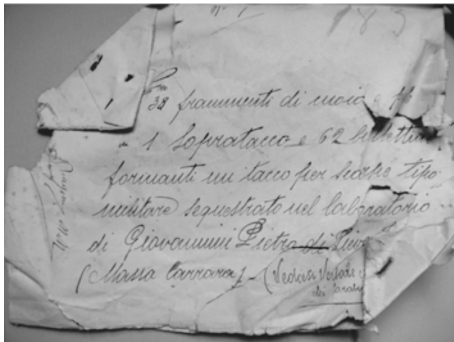 38 frammenti di cuoio e
1 Sopratacco e 62 bullettine
formanti un tacco per scarpe tipo
militare sequestrato nel laboratorio
di Giovannini Pietro di
(Massa Carrara) - (Vedasi Verbale
dei